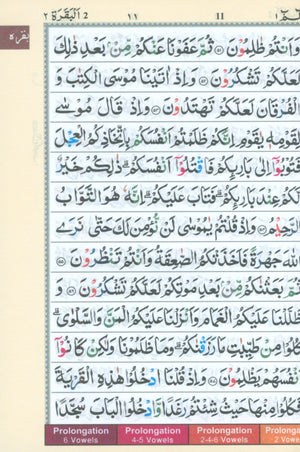 ٢ اَلْبَقَرَة 2 ١١ 11 ١
بقره
وَاَنْتُمْ ظٰلِمُوْنَ ﴿۵۱﴾ ثُمَّ عَفَوْنَا عَنْكُمْ مِّنْۢ بَعْدِ ذٰلِكَ
لَعَلَّكُمْ تَشْكُرُوْنَ ﴿۵۲﴾ وَاِذْ اٰتَيْنَا مُوْسَى الْكِتٰبَ وَ
الْفُرْقَانَ لَعَلَّكُمْ تَهْتَدُوْنَ ﴿۵۳﴾ وَاِذْ قَالَ مُوْسٰى
لِقَوْمِهٖ يٰقَوْمِ اِنَّكُمْ ظَلَمْتُمْ اَنْفُسَكُمْ بِاتِّخَاذِكُمُ الْعِجْلَ
فَتُوْبُوْٓا اِلٰى بَارِئِكُمْ فَاقْتُلُوْٓا اَنْفُسَكُمْ ؕ ذٰلِكُمْ خَيْرٌ
لَّكُمْ عِنْدَ بَارِئِكُمْ ؕ فَتَابَ عَلَيْكُمْ ؕ اِنَّهٗ هُوَ التَّوَّابُ
الرَّحِيْمُ ﴿۵۴﴾ وَاِذْ قُلْتُمْ يٰمُوْسٰى لَنْ نُّؤْمِنَ لَكَ حَتّٰى نَرَى
اللّٰهَ جَهْرَةً فَاَخَذَتْكُمُ الصّٰعِقَةُ وَاَنْتُمْ تَنْظُرُوْنَ ﴿۵۵﴾
ثُمَّ بَعَثْنٰكُمْ مِّنْۢ بَعْدِ مَوْتِكُمْ لَعَلَّكُمْ تَشْكُرُوْنَ ﴿۵۶﴾ وَ
ظَلَّلْنَا عَلَيْكُمُ الْغَمَامَ وَاَنْزَلْنَا عَلَيْكُمُ الْمَنَّ وَالسَّلْوٰى ؕ
كُلُوْا مِنْ طَيِّبٰتِ مَا رَزَقْنٰكُمْ ؕ وَمَا ظَلَمُوْنَا وَلٰكِنْ كَانُوْٓا
اَنْفُسَهُمْ يَظْلِمُوْنَ ﴿۵۷﴾ وَاِذْ قُلْنَا ادْخُلُوْا هٰذِهِ الْقَرْيَةَ
فَكُلُوْا مِنْهَا حَيْثُ شِئْتُمْ رَغَدًا وَّادْخُلُوا الْبَابَ سُجَّدًا
Prolongation 6 Vowels Prolongation 4-5 Vowels Prolongation 2-4-6 Vowels Prolongation 2 Vowels